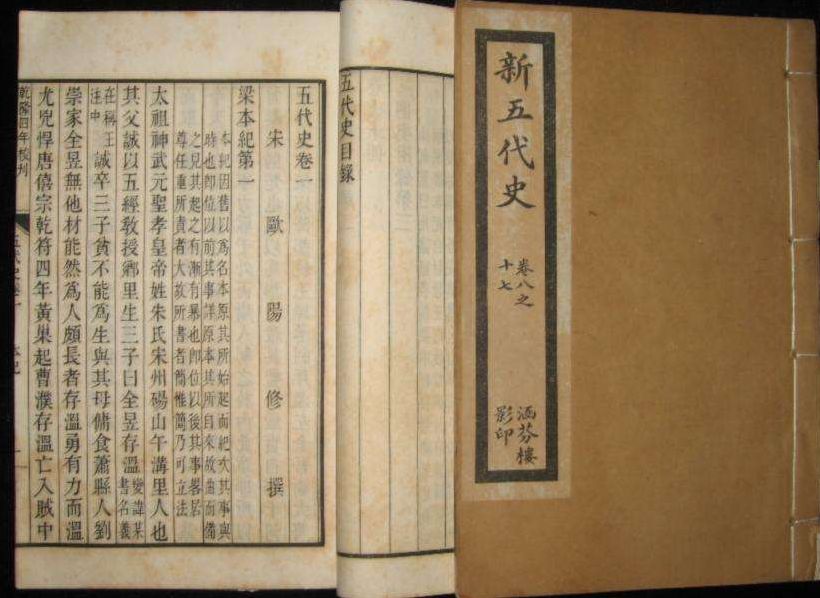 新五代史
卷八之
十七
涵芬樓
影印
五代史目錄
五代史卷一
宋歐陽修撰
梁本紀第一
本紀因舊以爲名本原其所始起而紀次其事與
時也卽位以前其事詳原本其所自來故曲而備
之見其起之有漸有暴也卽位以後其事畧居
尊任重所責者大故所書者簡惟簡乃可立法
太祖神武元聖孝皇帝姓朱氏宋州碭山午溝里人也
其父誠以五經教授鄉里生三子曰全昱存溫變諱某書名義
在稱王注中誠卒三子貧不能爲生與其母傭食蕭縣人劉
崇家全昱無他材能然爲人頗長者存溫勇有力而溫
尤兇悍唐僖宗乾符四年黃巢起曹濮存溫亡入賊中
乾隆四年校刊
五代史卷
本紀